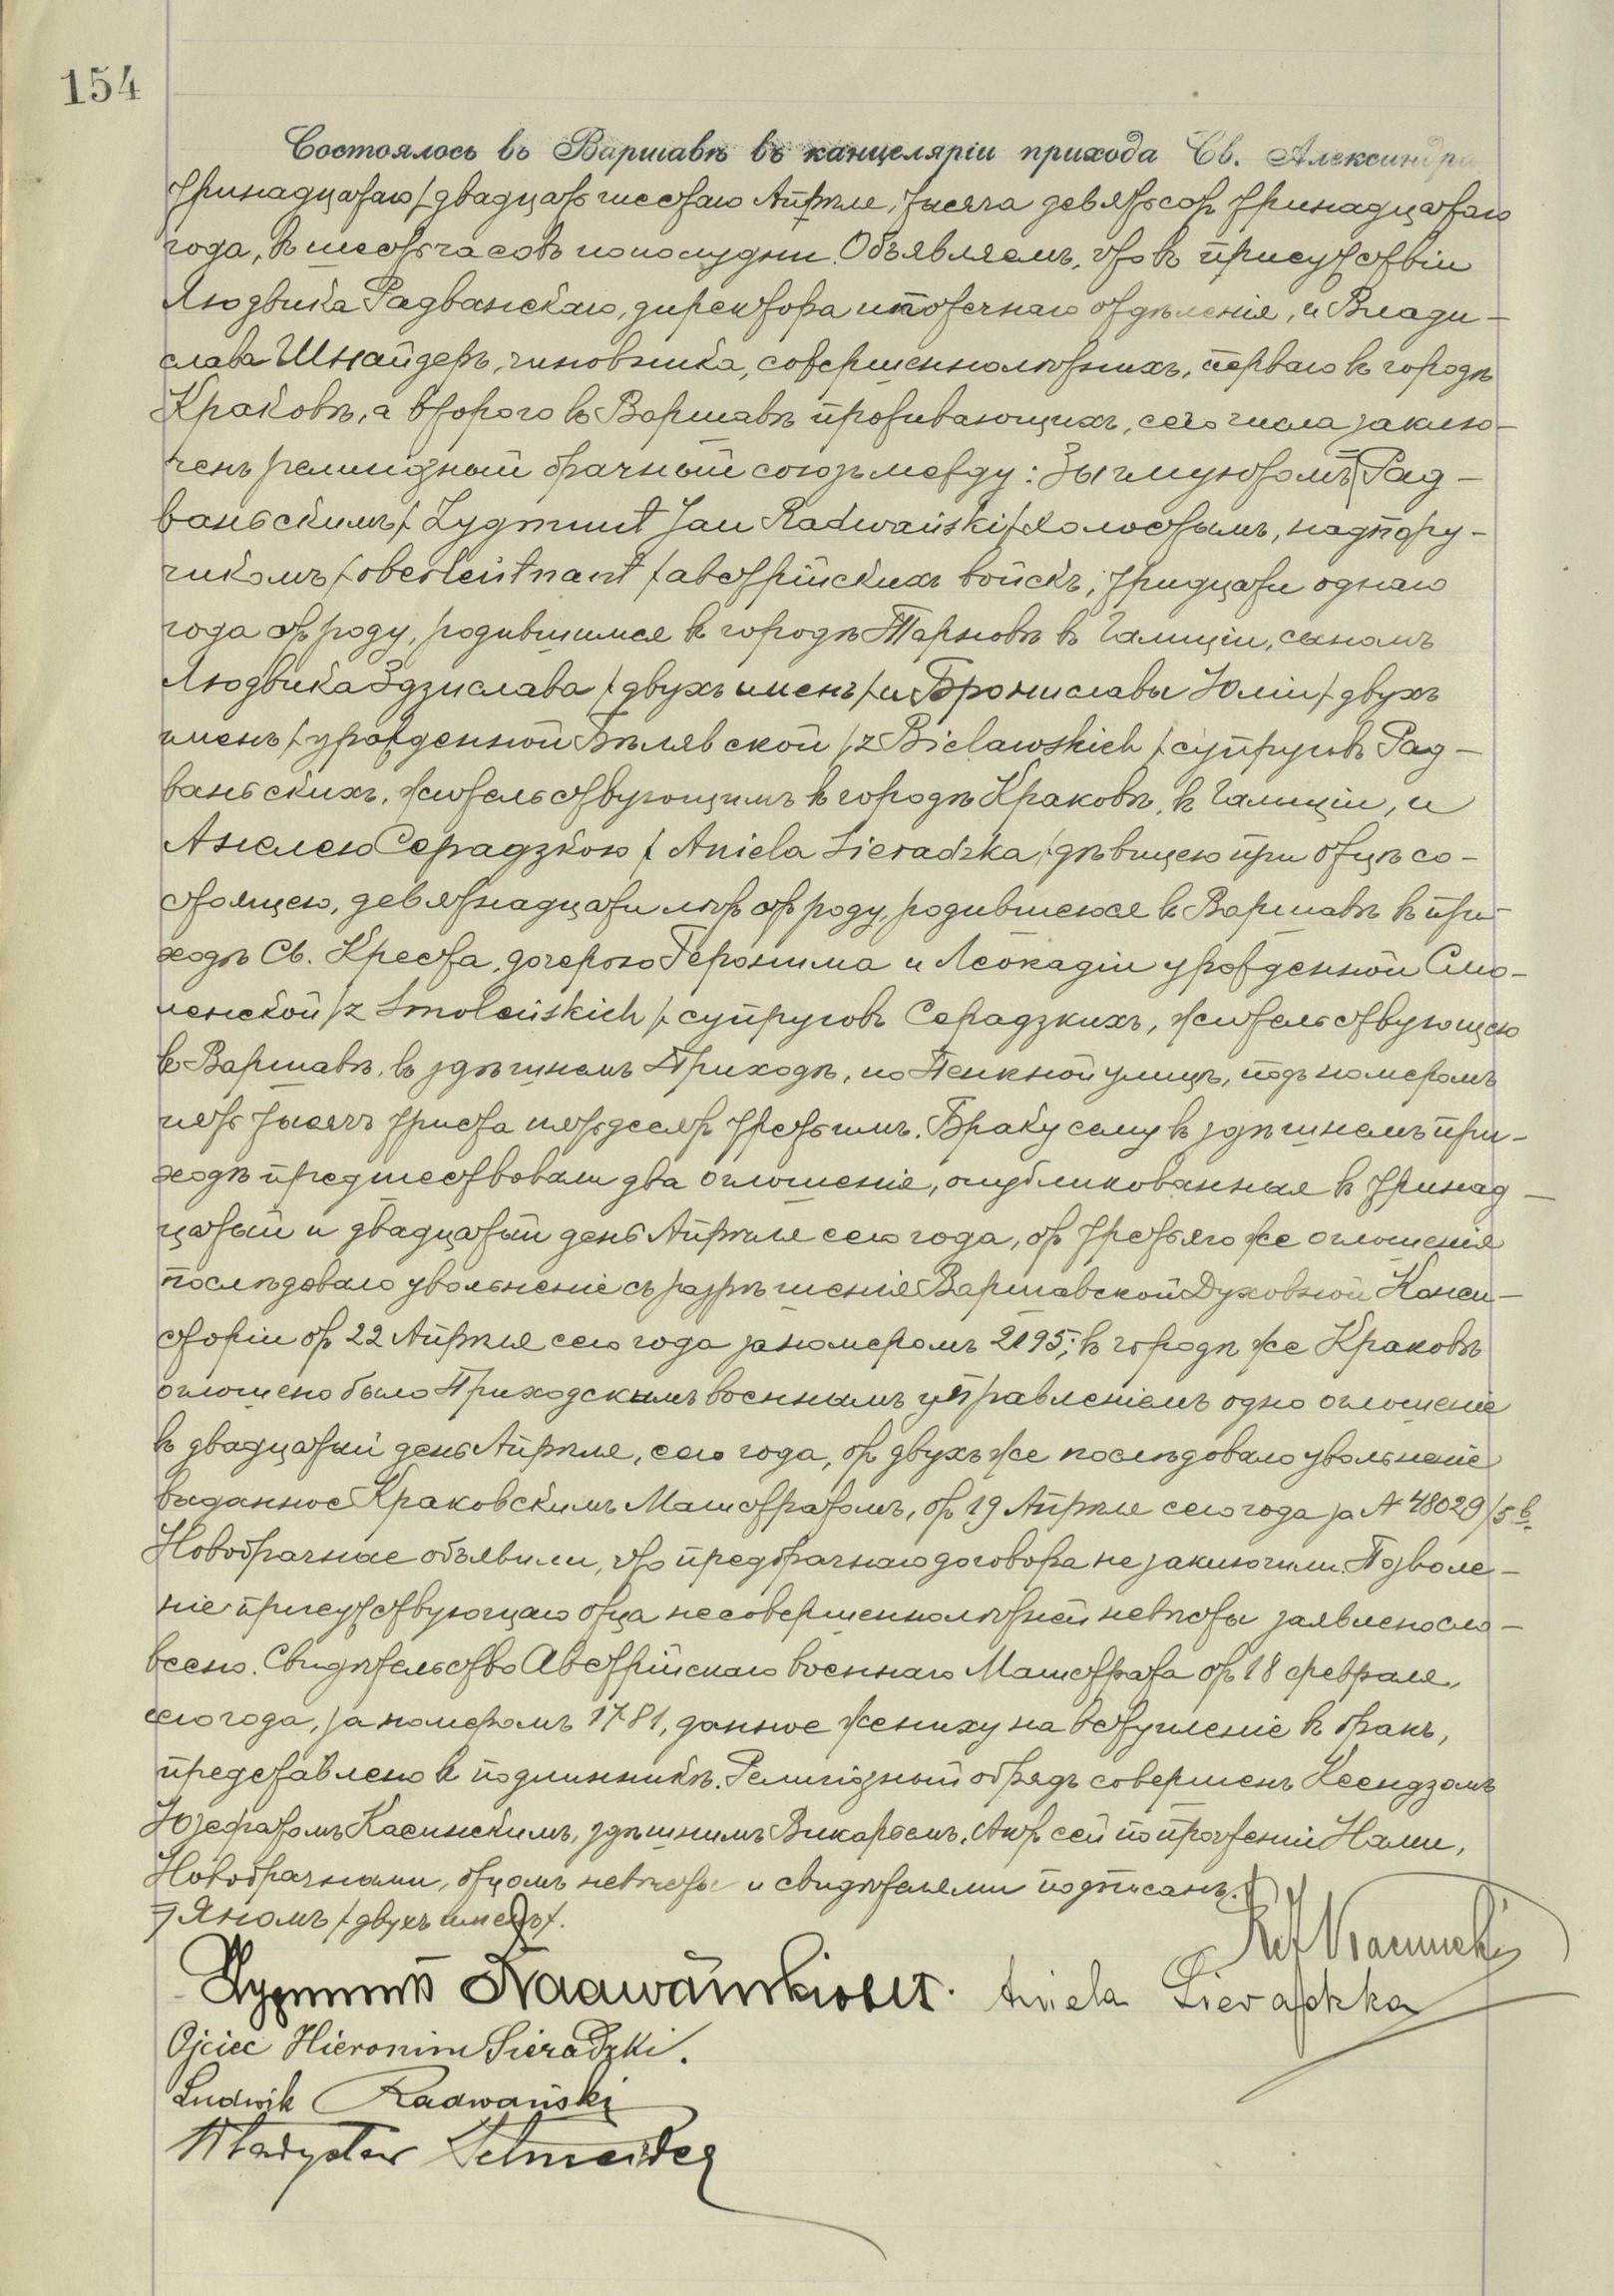 154
Состоялось въ Варшавѣ въ канцеляріи прихода Св. Александра
тринадцатаго/двадцать шестаго Апрѣля, тысяча девятьсотъ тринадцатаго
года, въ шесть часовъ пополудни. Объявляемъ, что въ присутствіи
Людвика Радванскаго, директора ипотечнаго отдѣленія, и Влади-
слава Шнайдеръ, чиновника, совершеннолѣтнихъ, перваго въ городѣ
Краковѣ, а втораго въ Варшавѣ проживающихъ, сего числа заклю-
ченъ религіозный брачный союзъ между: Зыгмунтомъ ꓶ Рад-
ваньскимъ /Zygmunt Jan Radwański/ холостымъ, надпору-
чикомъ /oberleutnant/ австрійскихъ войскъ, тридцати однаго
года отъ роду, родившимся въ городѣ Тарновѣ въ Галиціи, сыномъ
Людвика Здзислава /двухъ именъ/ и Брониславы Юліи /двухъ
именъ/ урожденной Бѣлявской /z Bielawskich/ супруговъ Рад-
ваньскихъ, жительствующимъ въ городѣ Краковѣ, въ Галиціи, и
Анелею Серадзкою /Aniela Sieradzka/ дѣвицею при отцѣ со-
стоящею, девятнадцати лѣтъ отъ роду, родившеюся въ Варшавѣ въ при-
ходѣ Св. Креста, дочерью Геронима и Леокадіи урожденной Смо-
ленской /z Smoleńskich/ супруговъ Серадзкихъ, жительствующею
въ Варшавѣ, въ здѣшнемъ Приходѣ, по Пенкной улицѣ, подъ номеромъ
пять тысячъ триста пятьдесятъ третьимъ. Браку сему въ здѣшнемъ при-
ходѣ предшествовали два оглашенія, опубликованныя въ тринад-
цатый и двадцатый день Апрѣля сего года, отъ третьяго же оглашенія
послѣдовало увольненіе съ разрѣшенія Варшавской Духовной Конси-
сторіи отъ 22 Апрѣля сего года за номеромъ 2195; въ городѣ же Краковѣ
оглашено было Приходскимъ военнымъ управленіемъ одно оглашеніе
въ двадцатый день Апрѣля, сего года, отъ двухъ же послѣдовало увольненіе
выданное Краковскимъ Магистратомъ, отъ 19 Апрѣля сего года за № 48029/5 в.
Новобрачные объявили, что предбрачнаго договора не заключили. Позволе-
ніе присутствующаго отца несовершеннолѣтней невѣсты заявлено сло-
весно. Свидѣтельство Австрійскаго военнаго Магистрата отъ 18 февраля,
сего года, за номеромъ 1781, данное жениху на вступленіе въ бракъ,
представлено къ подлиннику. Религіозный обрядъ совершенъ Ксендзомъ
Юзефатомъ Касинскимъ, здѣшнимъ Викарьемъ. Актъ сей по прочтеніи Нами,
Новобрачными, отцомъ невѣсты и свидѣтелями подписанъ.
ꓶ Яномъ /двухъ именъ/.
Zygmunt Radwański Aniela Sieradzka
Ojciec Hieronim Sieradzki.
Ludwik Radwański
Władysław Schneider